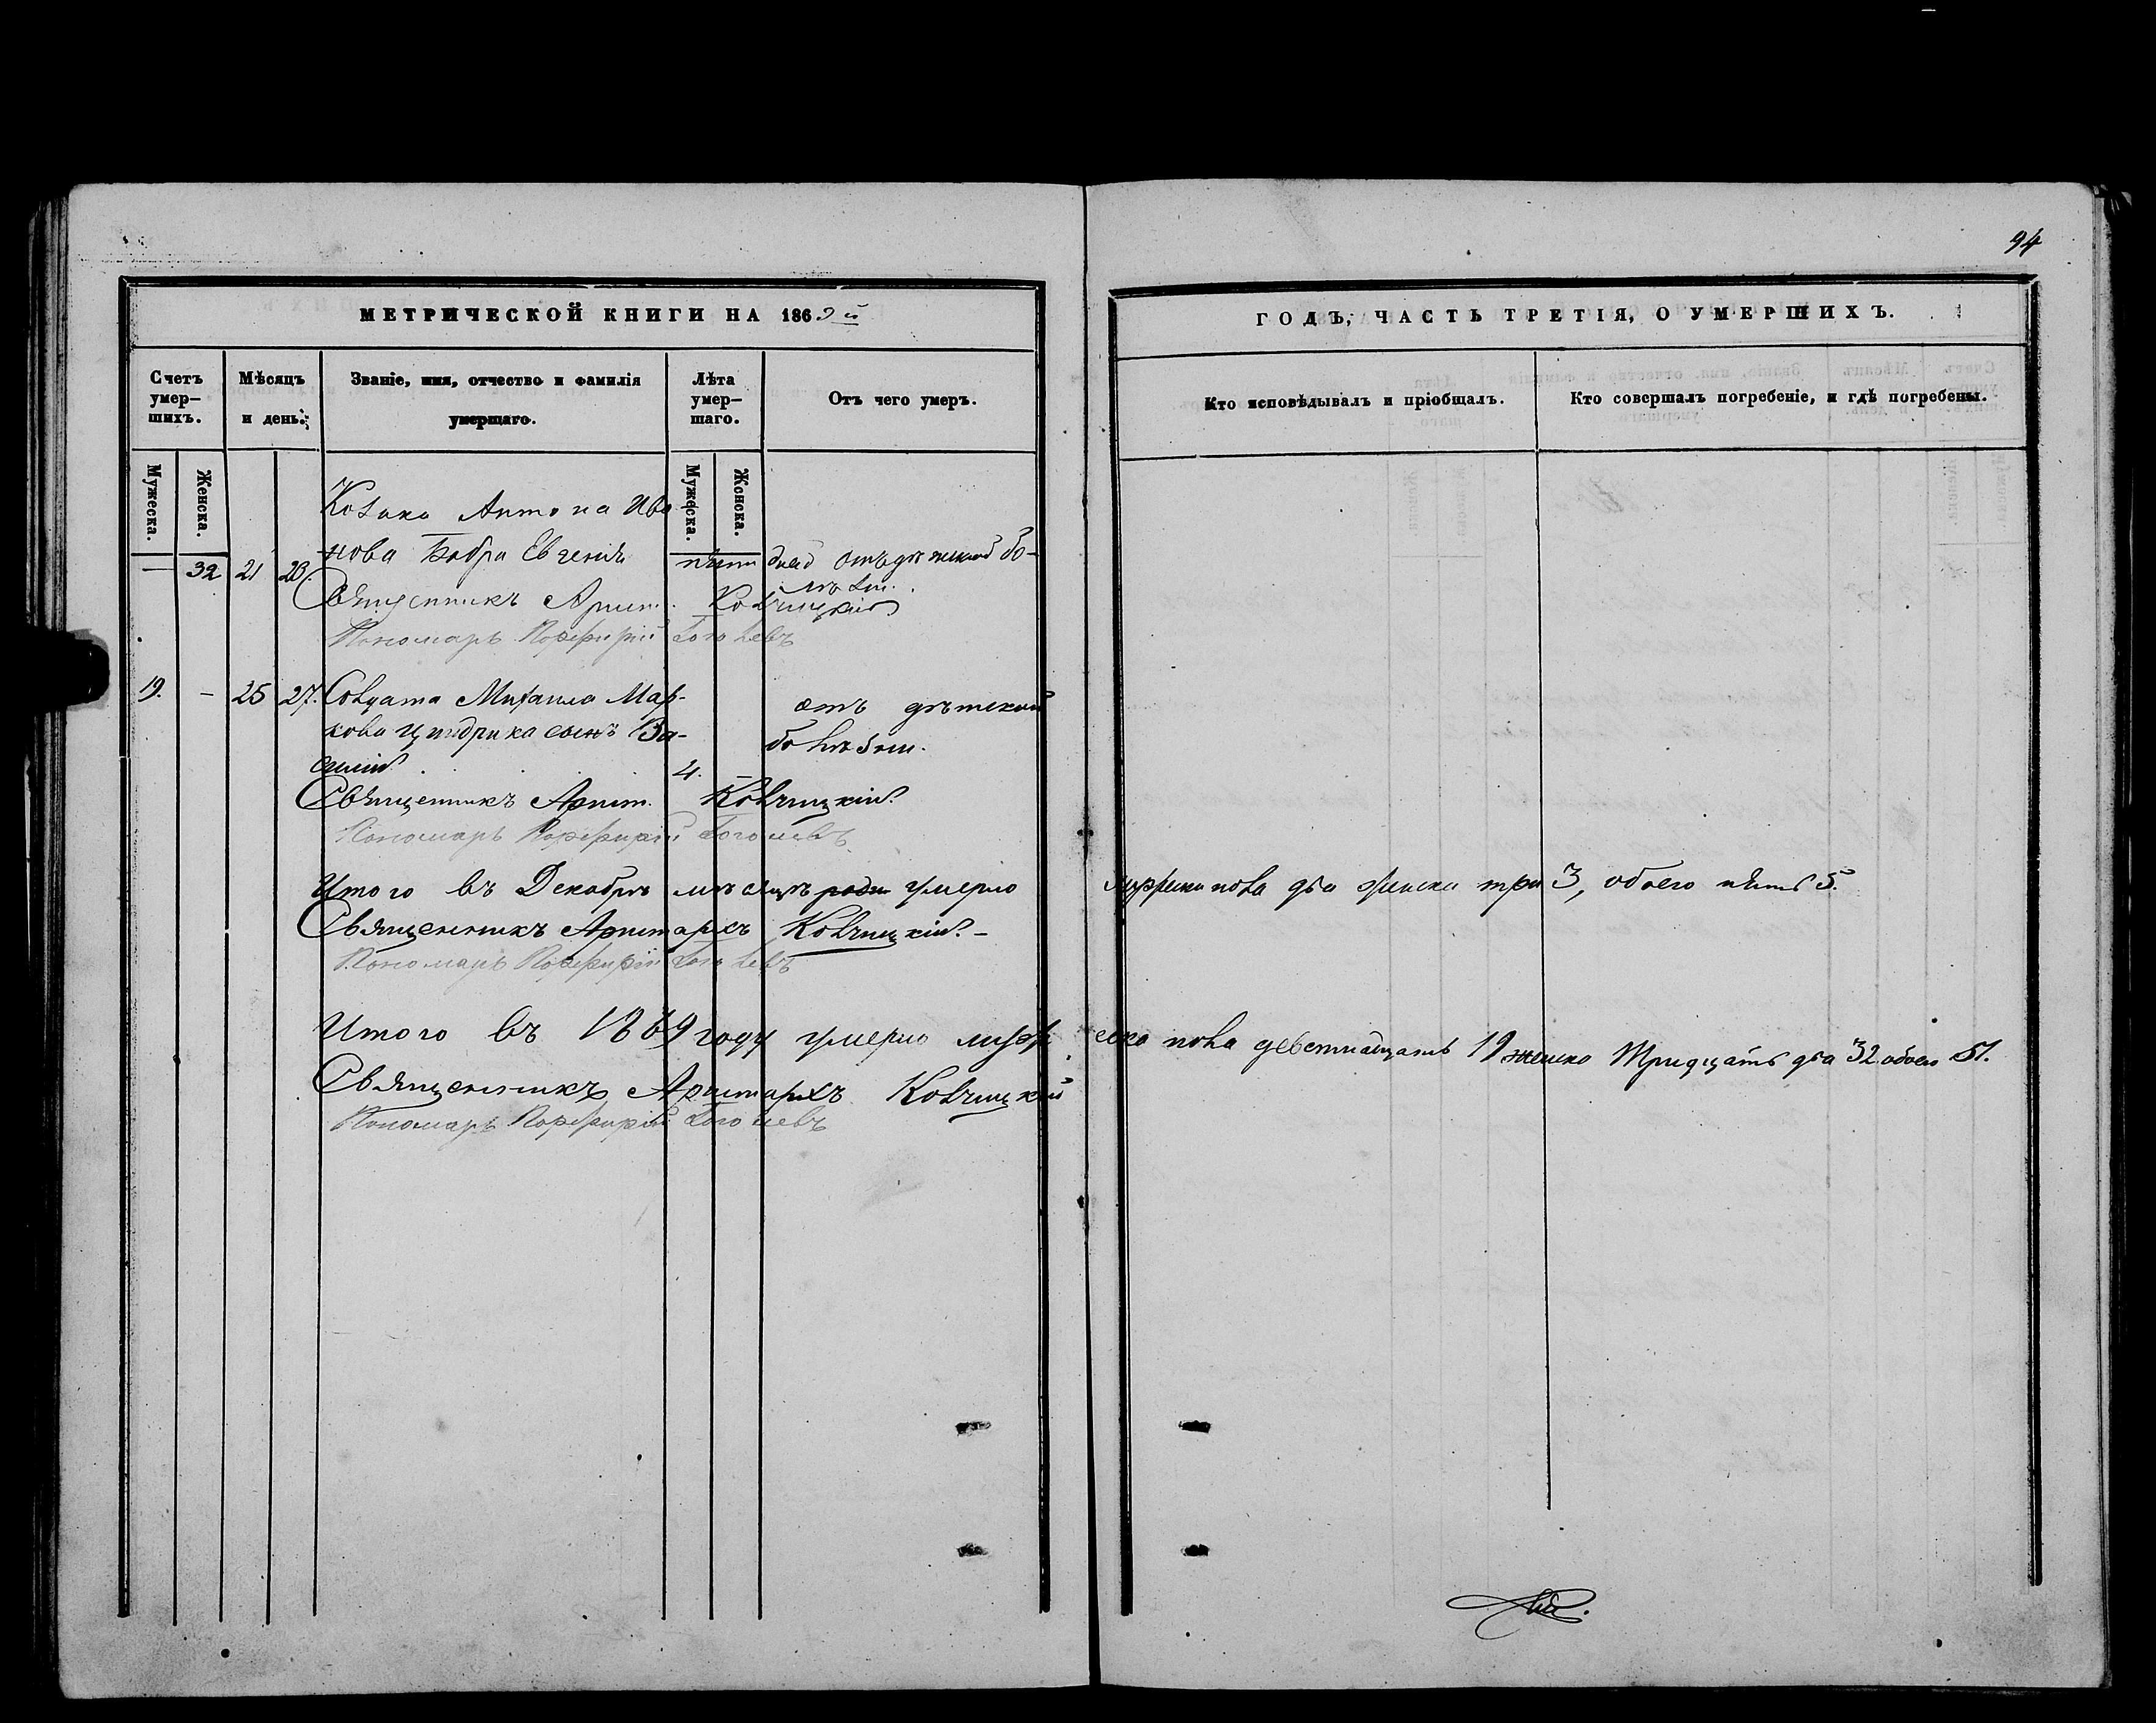 94
МЕТРИЧЕСКОЙ КНИГИ НА 1869 й
ГОДЪ, ЧАСТЬ ТРЕТІЯ, О УМЕРШИХЪ.
Счетъ умер-шихъ.
Мѣсяцъ и день.
Званіе, имя, отчество и фамилія умершаго.
Лѣта умер-шаго.
Отъ чего умеръ.
Кто исповѣдывалъ и пріобщалъ.
Кто совершалъ погребеніе, и гдѣ погребены.
Мужеска.
Женска.
Мужеска.
Женска.
Козака Антона Ива-
нова Бобра Евгенія
— 32 21 23. пяти дней отъ дѣтской бо-
лѣзни.
Священникъ Арист. Ковчицкій
Пономарь Порфирій Гоголевъ
19. — 25 27. Солдата Михаила Мар-
кова Циндрика сынъ Ва-
силій 4. —
отъ дѣтской
болѣзни.
Священникъ Арист. Ковчицкій
Пономарь Порфирій Гоголевъ
Итого въ Декабрѣ мѣсяцѣ умерло мужеска пола два женска три 3, обоего пять 5.
Священникъ Аристархъ Ковчицкій. —
Пономарь Порфирій Гоголевъ
Итого въ 1869 году умерло мужеска пола девятнадцать 19 женска тридцать два 32 обоего 51.
Священникъ Аристархъ Ковчицкій
Пономарь Порфирій Гоголевъ